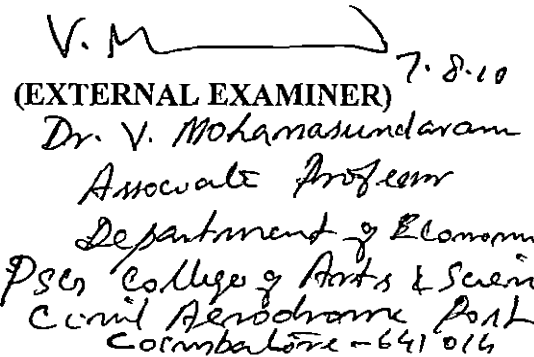 V. M
7.8.10
(EXTERNAL EXAMINER)
Dr. V. Mohanasundaram
Associate Professor
Department of Econom
PSG College of Arts & Scien
Civil Aerodrome Post
Coimbatore - 641 014